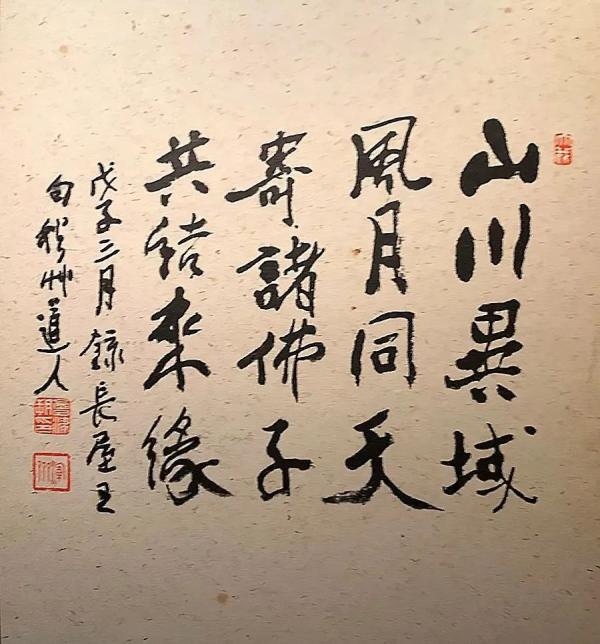 山川異域
風月同天
寄諸佛子
共結來緣
戊子二月錄長屋王
句 艸道人